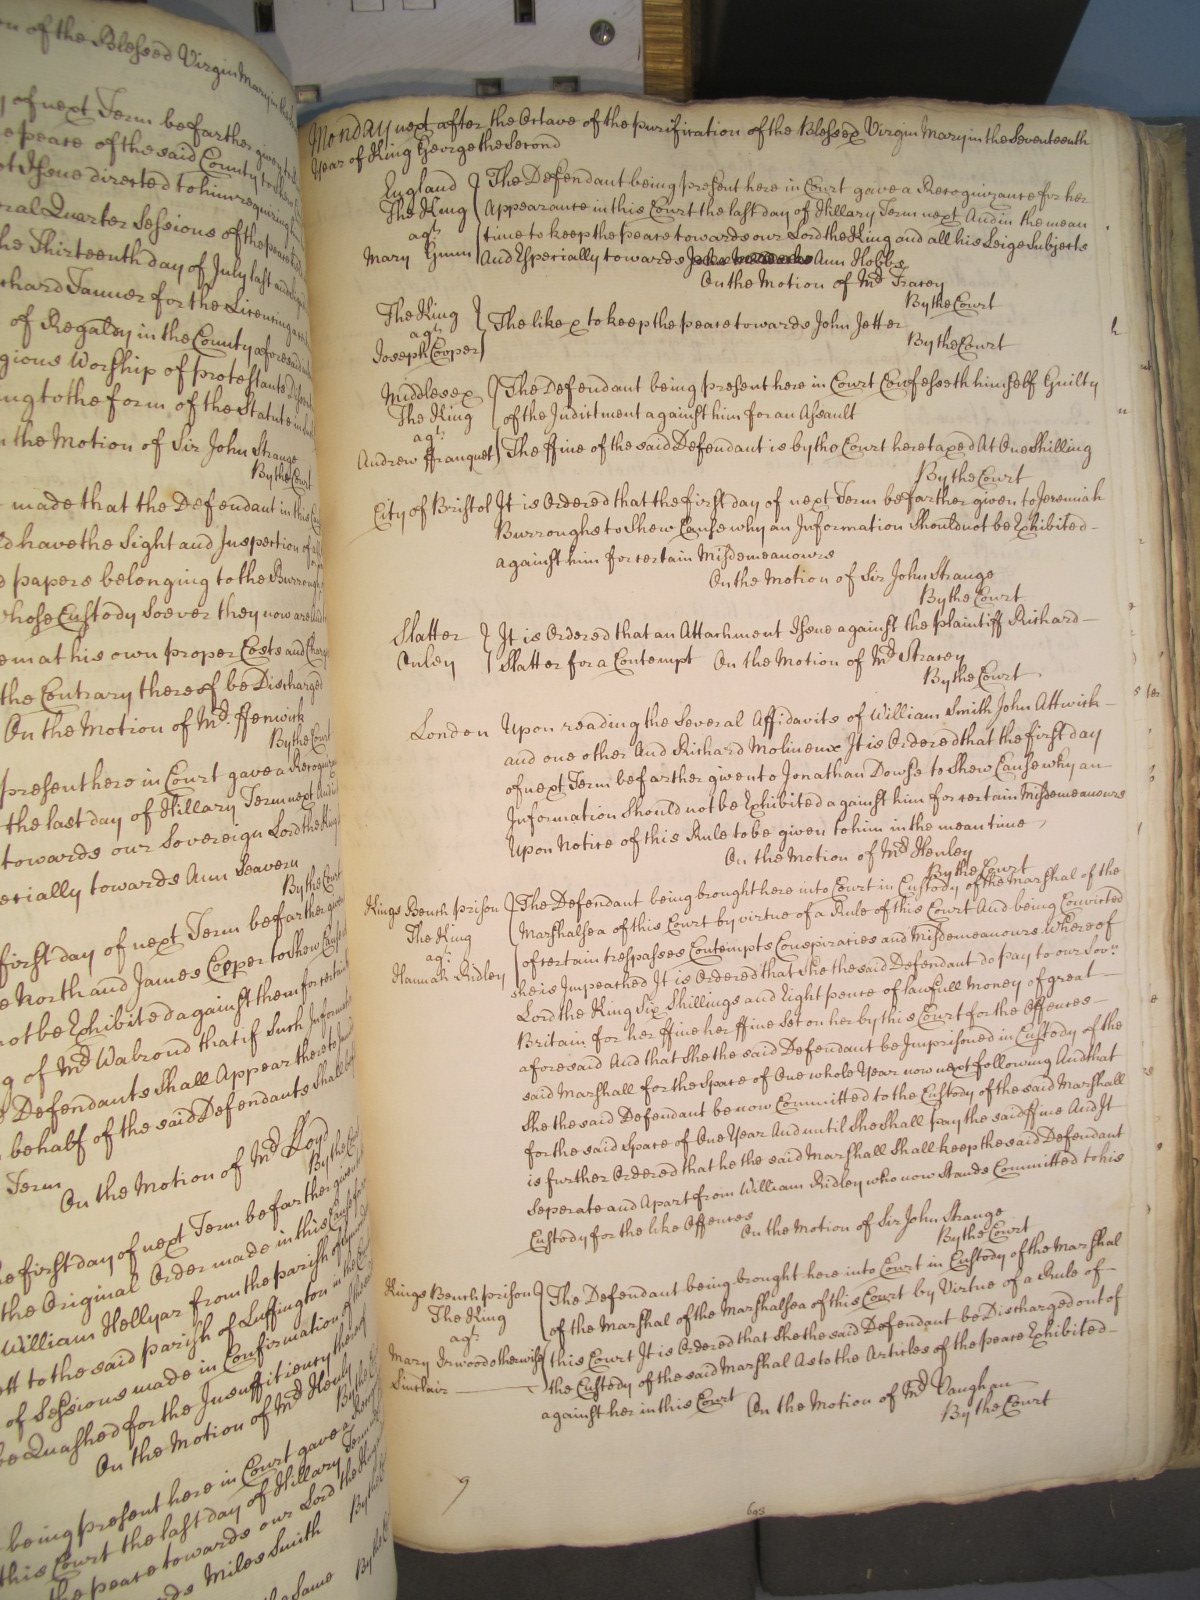 on of the Blessed Virgin Mary in the
of next Term be farther given to
peace of the said County to shew
Issue directed to him requiring
Quarter Sessions of the peace
the Thirteenth day of July last
Tanner for the Licensing
of Regaldy in the County aforesaid
Worship of protestants
to the form of the Statute in
the Motion of Sir John Strange
By the Court
made that the Defendant in this
have the Sight and Inspection of
papers belonging to the Burrough
whose Custody Soever they now are
at his own proper Costs and
the Contrary thereof be Discharged
On the Motion of Mr. ffenwick
By the Court
present here in Court gave a
the last day of Hillary Term next
towards our Sovereign Lord the
towards Ann Seavern
By the Court
first day of next Term be farther
North and James Cooper to Shew
not be Exhibited against them for
of Mr Walrond that if Such
Defendants Shall Appear thereto
behalf of the said Defendants
Term
On the Motion of Mr Lloyd
By the
first day of next Term be farther
the Original Order made in this
William Hellyar from the parish of
to the said parish of Luffington in the
of Sessions made in Confirmation
be Quashed for the Insufficiency thereof
On the Motion of Mr Henly
By the
being present here in Court gave a
this Court the last day of Hillary Term
the peace towards our Lord the
Miles Smith
the Same
By the
Monday next after the Octave of the purification of the Blessed Virgin Mary in the Seventeenth
Year of King George the Second
England The Defendant being present here in Court gave a Recognizance for her
The King Appearance in this Court the last day of Hillary Term next And in the mean
agt. time to keep the peace towards our Lord the King and all his Leige Subjects
Mary Gunn And Especially towards Ann Hobbs
On the Motion of Mr Tracey
By the Court
The King
agt. The like x to keep the peace towards John Jetter
Joseph Cooper By the Court
Middlesex The Defendant being present here in Court Confesseth himself Guilty
The King of the Indictment against him for an Assault
agt.
Andrew ffranquet The ffine of the said Defendant is by the Court here taxed At One Shilling
By the Court
City of Bristol It is Ordered that the first day of next Term be farther given to Jeremiah
Burroughs to Shew Cause why an Information Should not be Exhibited
against him for certain Misdemeanours
On the Motion of Sir John Strange
By the Court
Slatter It is Ordered that an Attachment Issue against the plaintiff Richard
Onley Slatter for a Contempt On the Motion of Mr Stracey
By the Court
London Upon reading the Several Affidavits of William Smith John Attwick
and one other And Richard Molineux It is Ordered that the first day
of next Term be farther given to Jonathan Dowse to Shew Cause why an
Information Should not be Exhibited against him for certain Misdemeanours
Upon Notice of this Rule to be given to him in the mean time
On the Motion of Mr Henley
By the Court
Kings Bench prison The Defendant being brought here into Court in Custody of the Marshal of the
The King Marshalsea of this Court by virtue of a Rule of this Court And being Convicted
agt. of certain trespasses Contempts Conspiracies and Misdemeanours Whereof
Hannah Ridley she is Impeached It is Ordered that She the said Defendant do pay to our Sovn.
Lord the King Six Shillings and Eight pence of lawfull Money of great
Britain for her ffine her ffine Set on her by this Court for the Offences
aforesaid And that She the said Defendant be Imprisoned in Custody of the
said Marshall for the Space of One whole Year now next following And that
She the said Defendant be now Committed to the Custody of the said Marshall
for the said Space of One Year And until She Shall pay the said ffine And It
is further Ordered that he the said Marshall Shall keep the said Defendant
Seperate and Apart from William Ridley who now Stands Committed to his
Custody for the like Offences On the Motion of Sir John Strange
By the Court
Kings Bench prison The Defendant being brought here into Court in Custody of the Marshal
The King of the Marshal of the Marshalsea of this Court by Virtue of a Rule of
agt. this Court It is Ordered that She the said Defendant be Discharged out of
Mary Irwood otherwise the Custody of the said Marshal As to the Articles of the peace Exhibited
Sinclair against her in this Court On the Motion of Mr Vaughan
By the Court
9
605